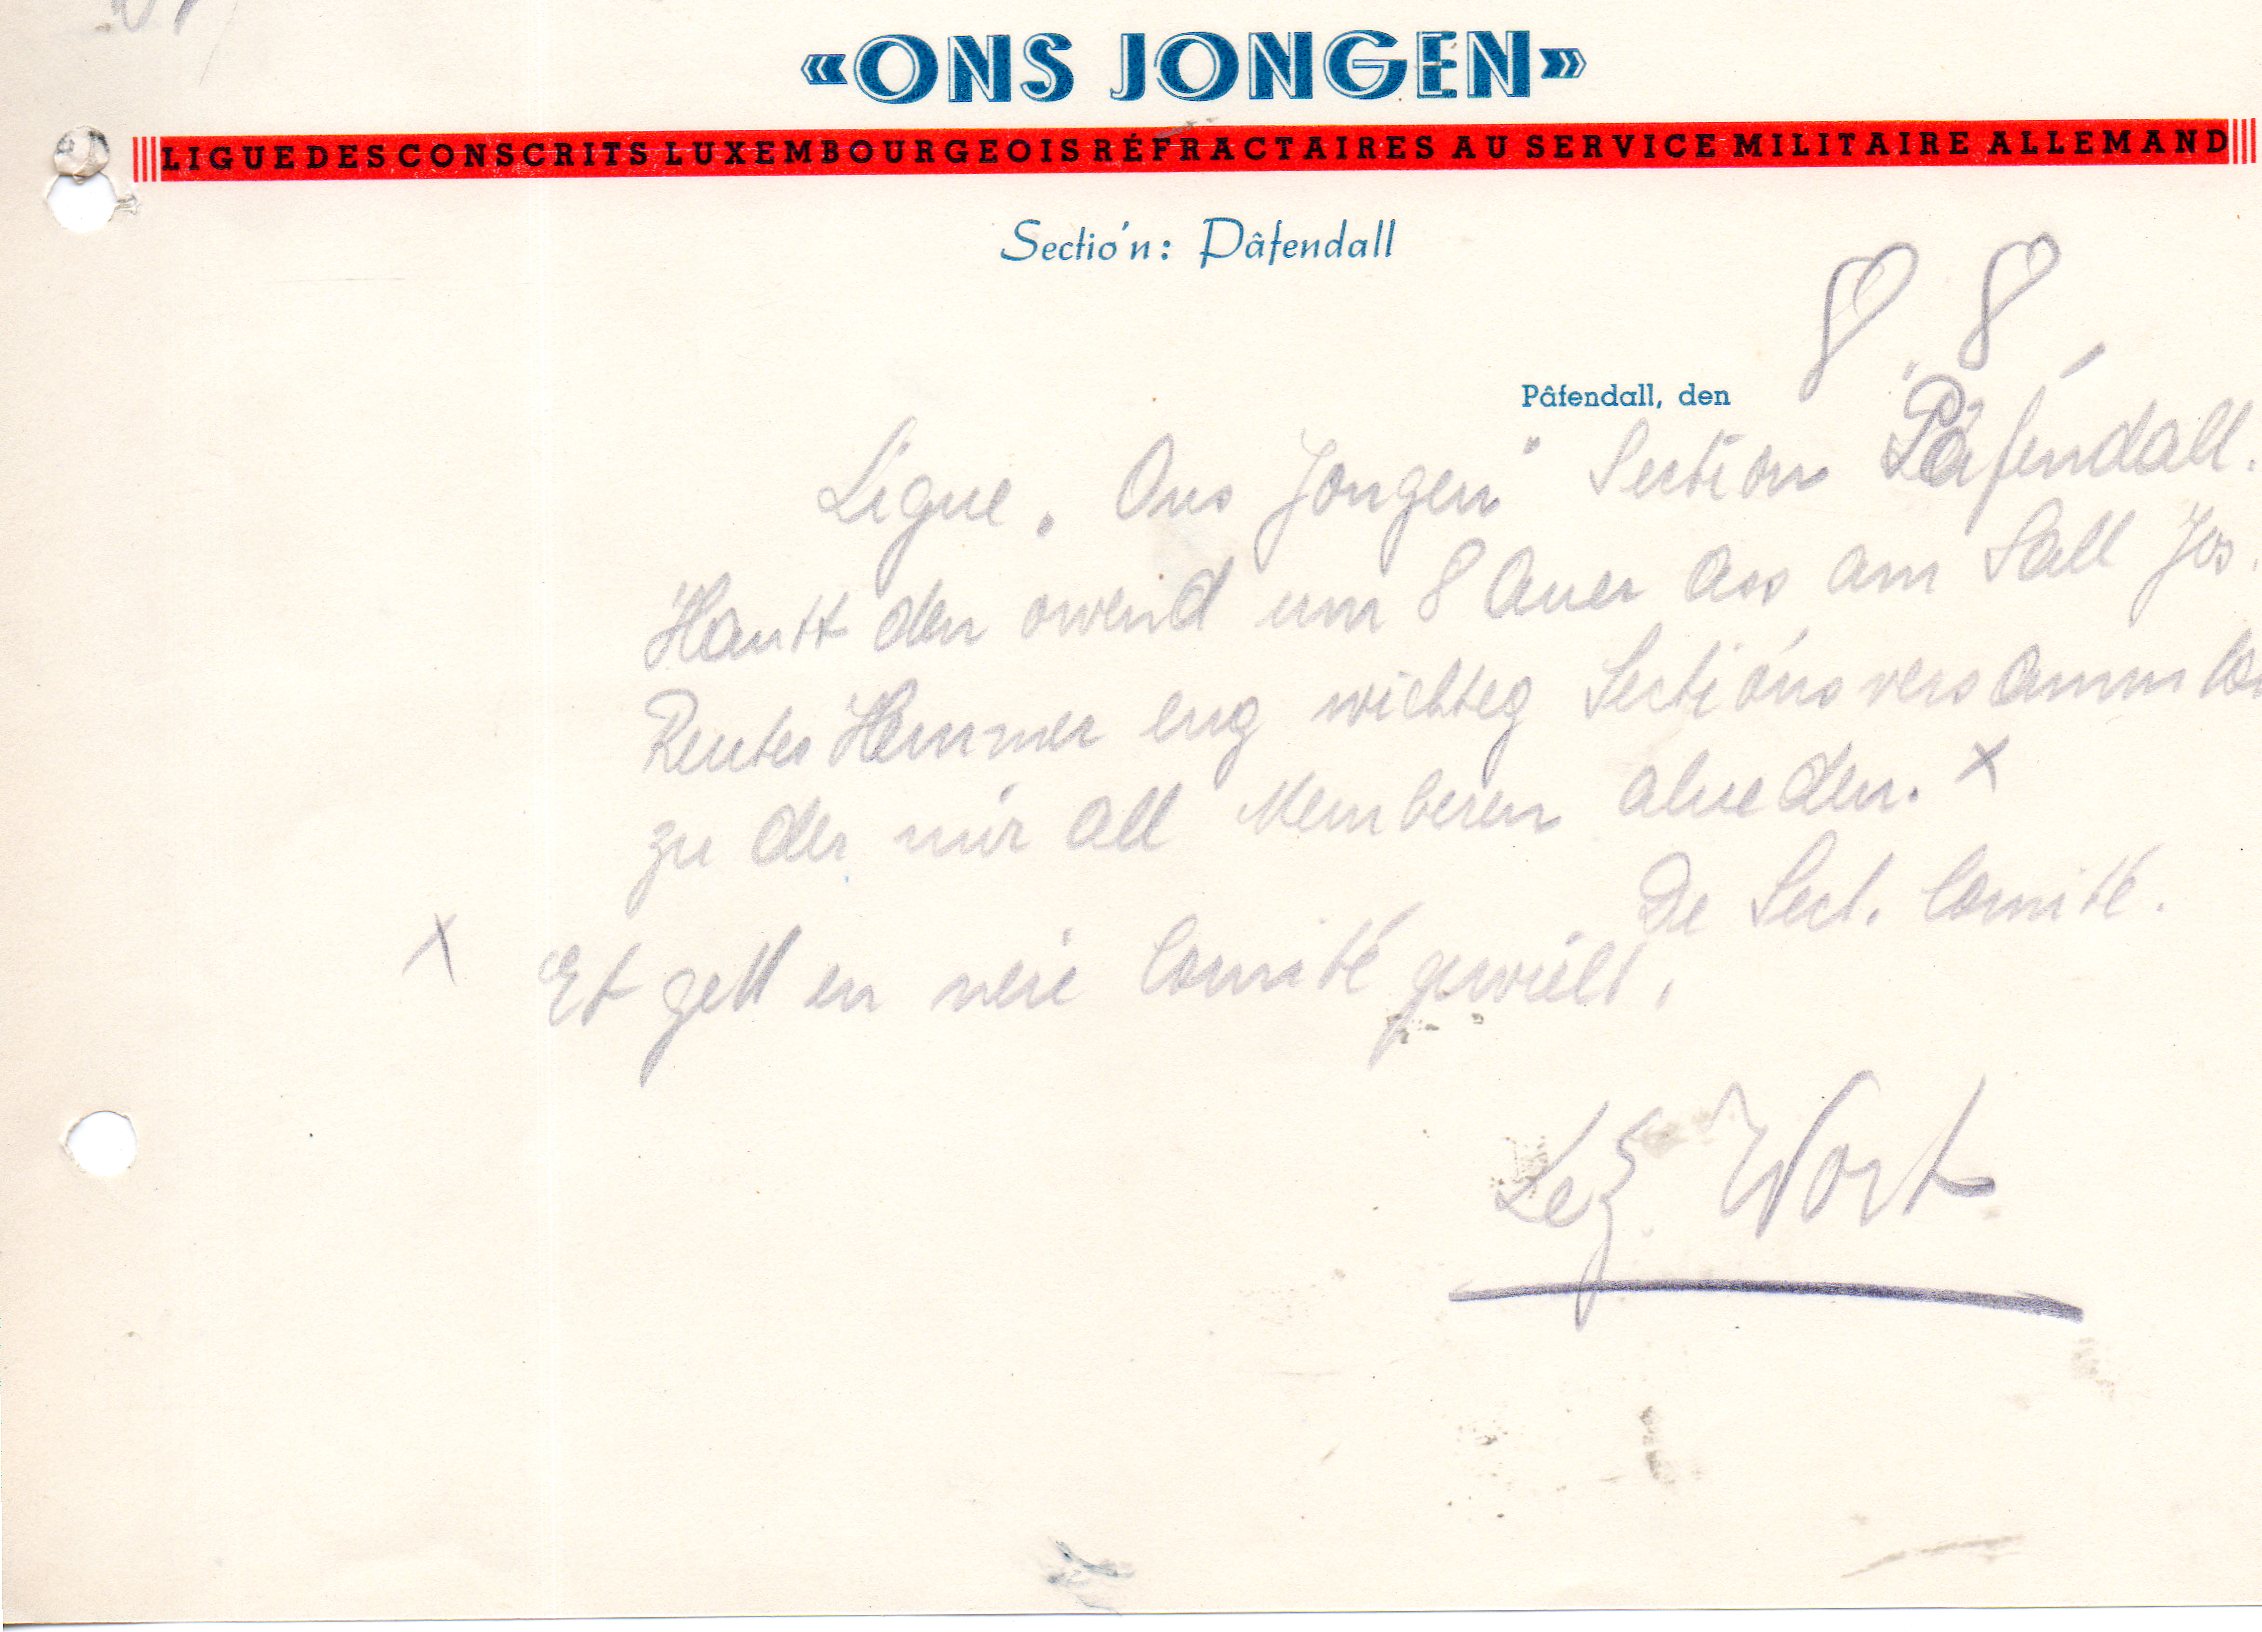 «ONS JONGEN»
LIGUE DES CONSCRITS LUXEMBOURGEOIS RÉFRACTAIRES AU SERVICE MILITAIRE ALLEMAND
Sectio'n: Pâfendall
8 8
Pâfendall, den
Ligue „Ons Jongen" Section Päfendall.
Hautt den owend um 8 Auer ass am Sall Jos.
Reuter Hemmer eng wichteg Sectiónsversamm
zu der mir all Memberen alueden. x
De Sect. Comité.
x Et gett en neie Comité gewielt.
Lëz. Wort